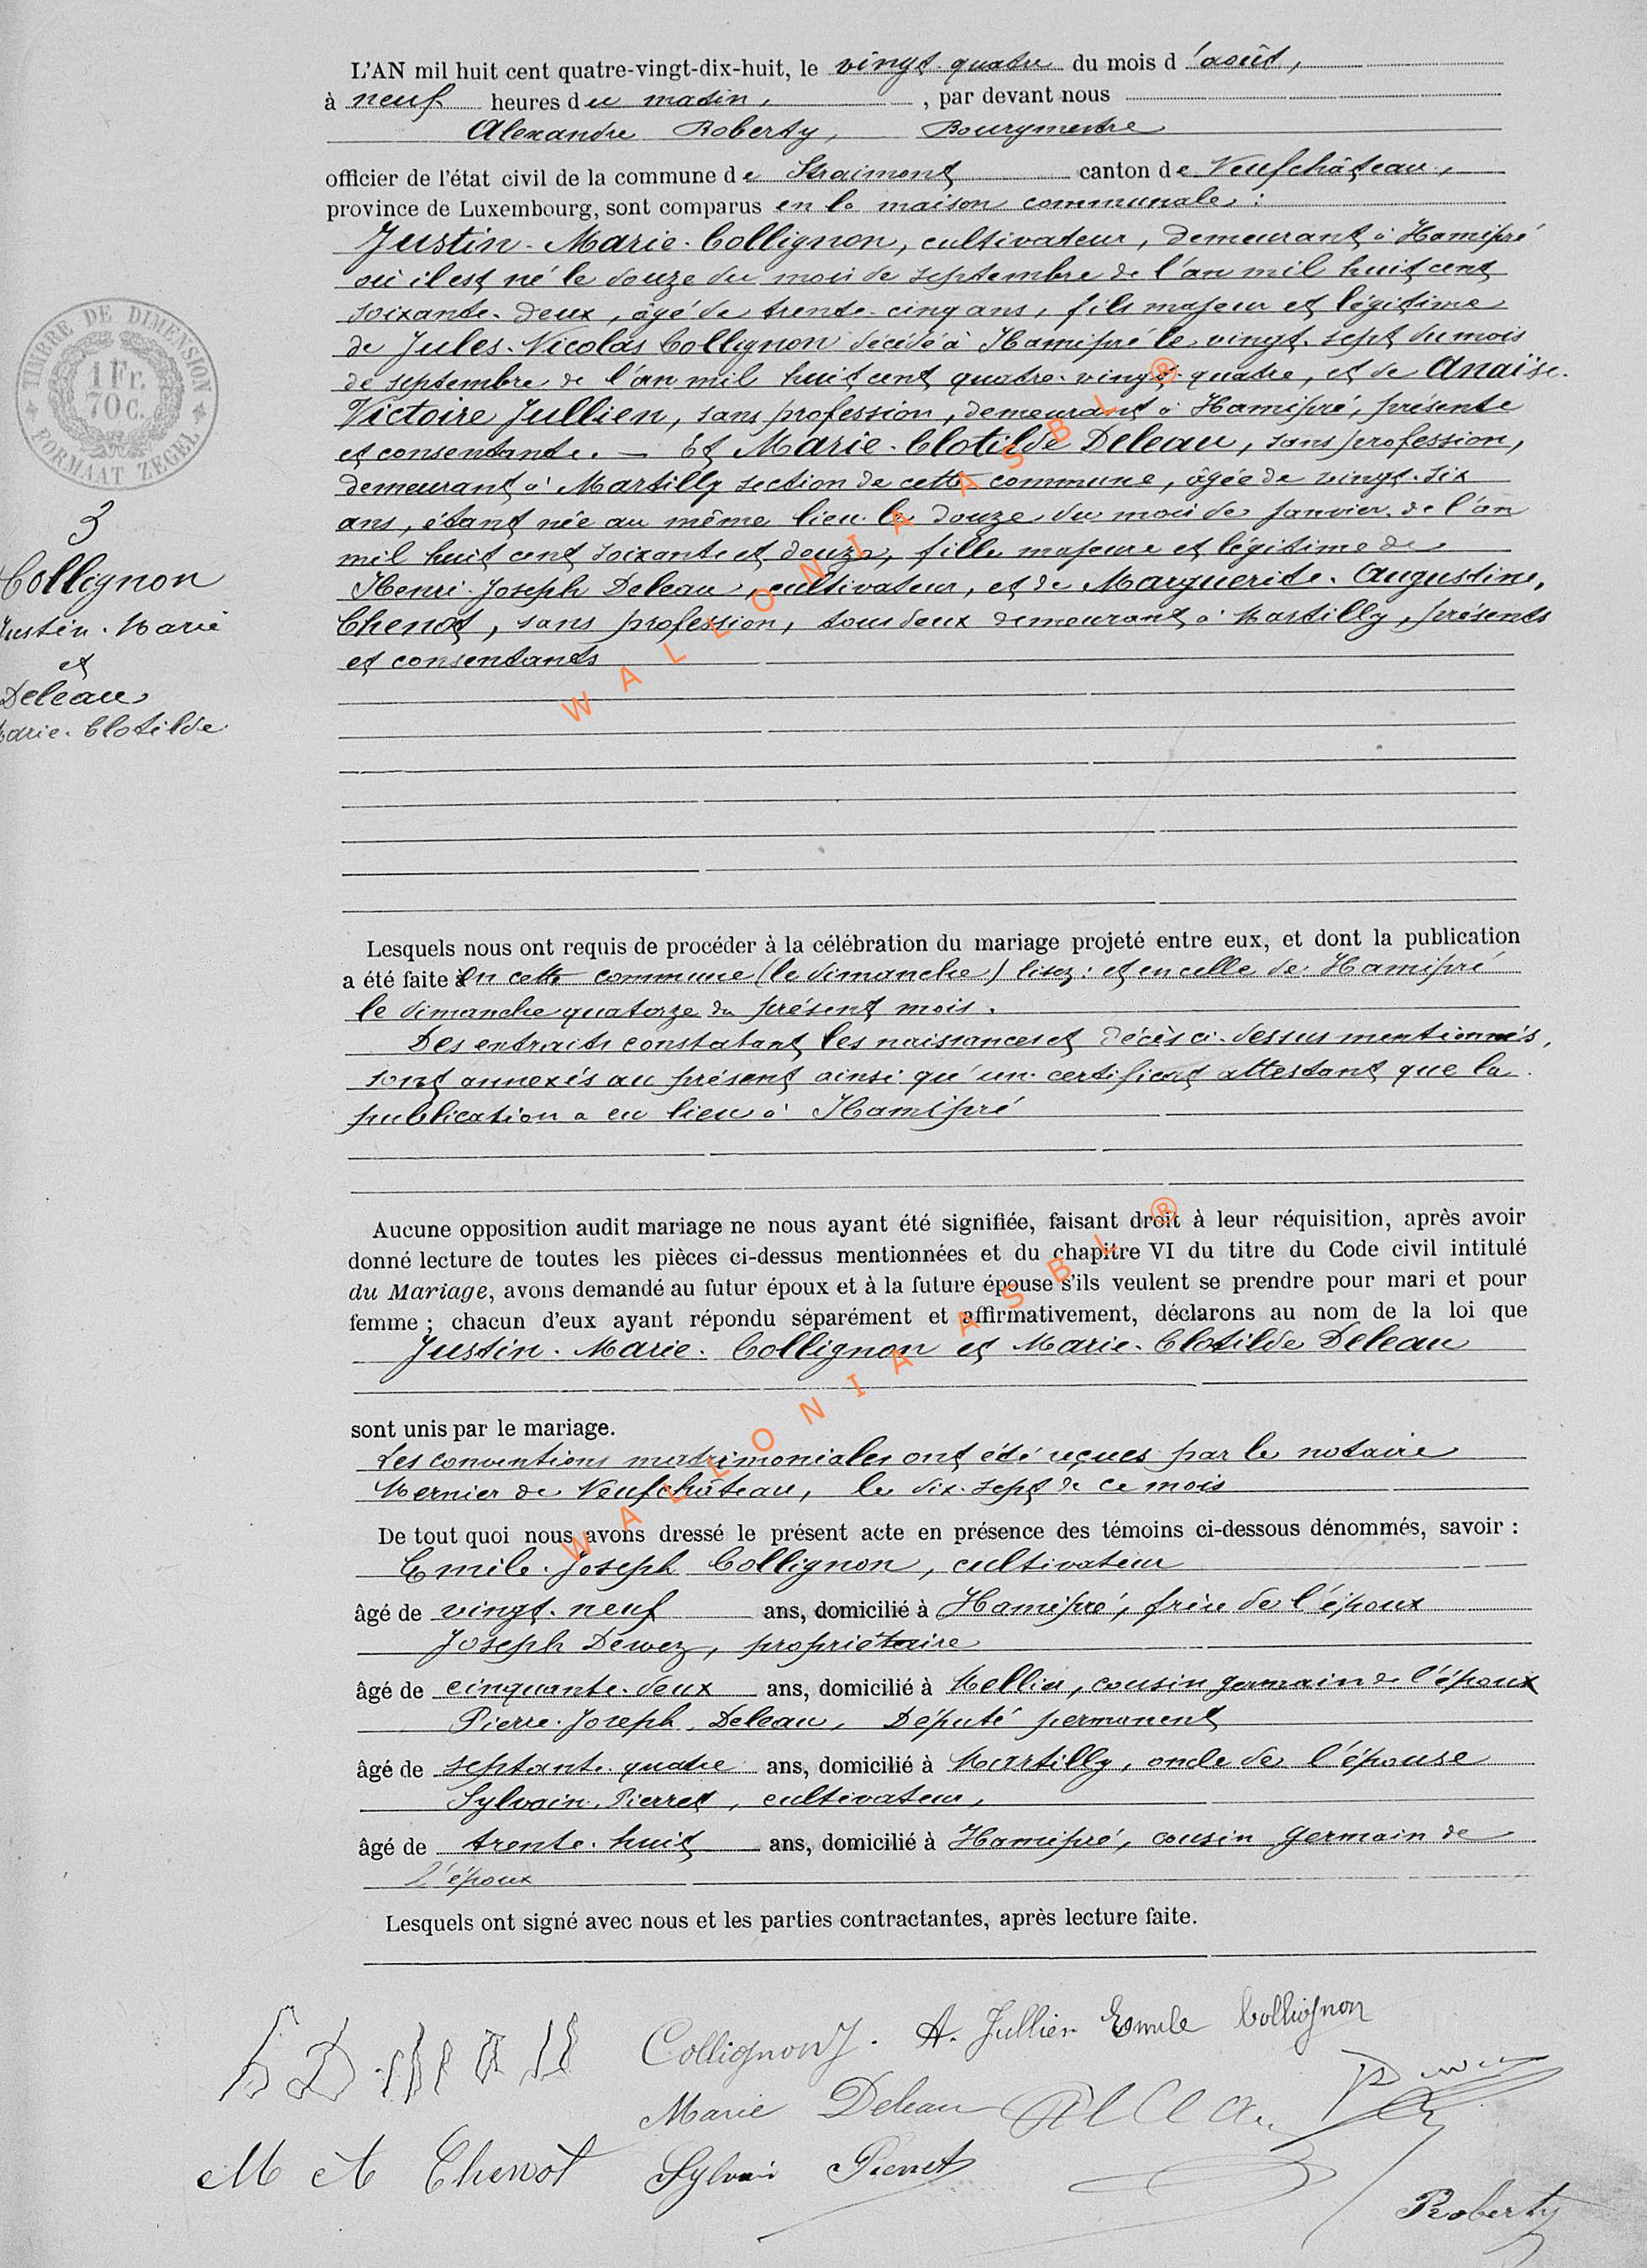 L'AN mil huit cent quatre-vingt-dix-huit, le vingt-quatre du mois d'août,
à neuf heures du matin, , par devant nous
Alexandre Roberty, Bourgmestre
officier de l'état civil de la commune de Straimont canton de Neufchâteau,
province de Luxembourg, sont comparus en la maison communale :
Justin-Marie-Collignon, cultivateur, demeurant à Hamipré
où il est né le douze du mois de septembre de l'an mil huit cent
soixante-deux, âgé de trente-cinq ans, fils majeur et légitime
de Jules-Nicolas Collignon décédé à Hamipré le vingt-sept du mois
de septembre de l'an mil huit cent quatre-vingt-quatre, et de Anaïse-
Victoire Jullien, sans profession, demeurant à Hamipré, présente
et consentante. — Et Marie-Clotilde Deleau, sans profession,
demeurant à Martilly section de cette commune, âgée de vingt-six
ans, étant née au même lieu le douze du mois de janvier de l'an
mil huit cent soixante et douze, fille majeure et légitime de
Henri-Joseph Deleau, cultivateur, et de Marguerite-Augustine,
Chenot, sans profession, tous deux demeurant à Martilly, présents
et consentants
TIMBRE DE DIMENSION
1 Fr.
70 C.
FORMAAT ZEGEL
3
Collignon
Justin-Marie
et
Deleau
Marie-Clotilde
WALLONIA ASBL ®
Lesquels nous ont requis de procéder à la célébration du mariage projeté entre eux, et dont la publication
a été faite en cette commune (le dimanche) lisez : et en celle de Hamipré
le dimanche quatorze du présent mois.
Des extraits constatant les naissances et décès ci-dessus mentionnés,
sont annexés au présent ainsi qu'un certificat attestant que la
publication a eu lieu à Hamipré
Aucune opposition audit mariage ne nous ayant été signifiée, faisant droit à leur réquisition, après avoir
donné lecture de toutes les pièces ci-dessus mentionnées et du chapitre VI du titre du Code civil intitulé
du Mariage, avons demandé au futur époux et à la future épouse s'ils veulent se prendre pour mari et pour
femme ; chacun d'eux ayant répondu séparément et affirmativement, déclarons au nom de la loi que
Justin-Marie-Collignon et Marie-Clotilde Deleau
sont unis par le mariage.
Les conventions matrimoniales ont été reçues par le notaire
Mernier de Neufchâteau, le dix-sept de ce mois
WALLONIA ASBL ®
De tout quoi nous avons dressé le présent acte en présence des témoins ci-dessous dénommés, savoir :
Emile-Joseph Collignon, cultivateur
âgé de vingt-neuf ans, domicilié à Hamipré, frère de l'époux
Joseph Dewez, propriétaire
âgé de cinquante-deux ans, domicilié à Mellier, cousin germain de l'époux
Pierre-Joseph Deleau, Député permanent
âgé de septante-quatre ans, domicilié à Martilly, oncle de l'épouse
Sylvain Pierret, cultivateur,
âgé de trente-huit ans, domicilié à Hamipré, cousin germain de
l'époux
Lesquels ont signé avec nous et les parties contractantes, après lecture faite.
Collignon J. A. Jullien Emile Collignon
Marie Deleau
M A Chenot Sylvain Pierret
Roberty